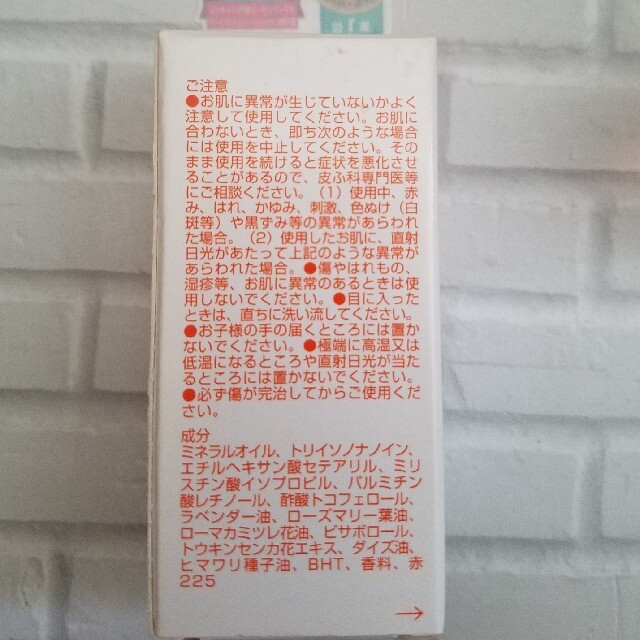 ご注意
●お肌に異常が生じていないかよく
注意して使用してください。お肌に
合わないとき、即ち次のような場合
には使用を中止してください。その
まま使用を続けると症状を悪化させ
ることがあるので、皮ふ科専門医等
にご相談ください。（1）使用中、赤
み、はれ、かゆみ、刺激、色ぬけ（白
斑等）や黒ずみ等の異常があらわれ
た場合。（2）使用したお肌に、直射
日光があたって上記のような異常が
あらわれた場合。●傷やはれもの、
湿疹等、お肌に異常のあるときは使
用しないでください。●目に入った
ときは、直ちに洗い流してください。
●お子様の手の届くところには置か
ないでください。●極端に高温又は
低温になるところや直射日光が当た
るところには置かないでください。
●必ず傷が完治してからご使用くだ
さい。
成分
ミネラルオイル、トリイソノナノイン、
エチルヘキサン酸セテアリル、ミリ
スチン酸イソプロピル、パルミチン
酸レチノール、酢酸トコフェロール、
ラベンダー油、ローズマリー葉油、
ローマカミツレ花油、ビサボロール、
トウキンセンカ花エキス、ダイズ油、
ヒマワリ種子油、BHT、香料、赤
225
→